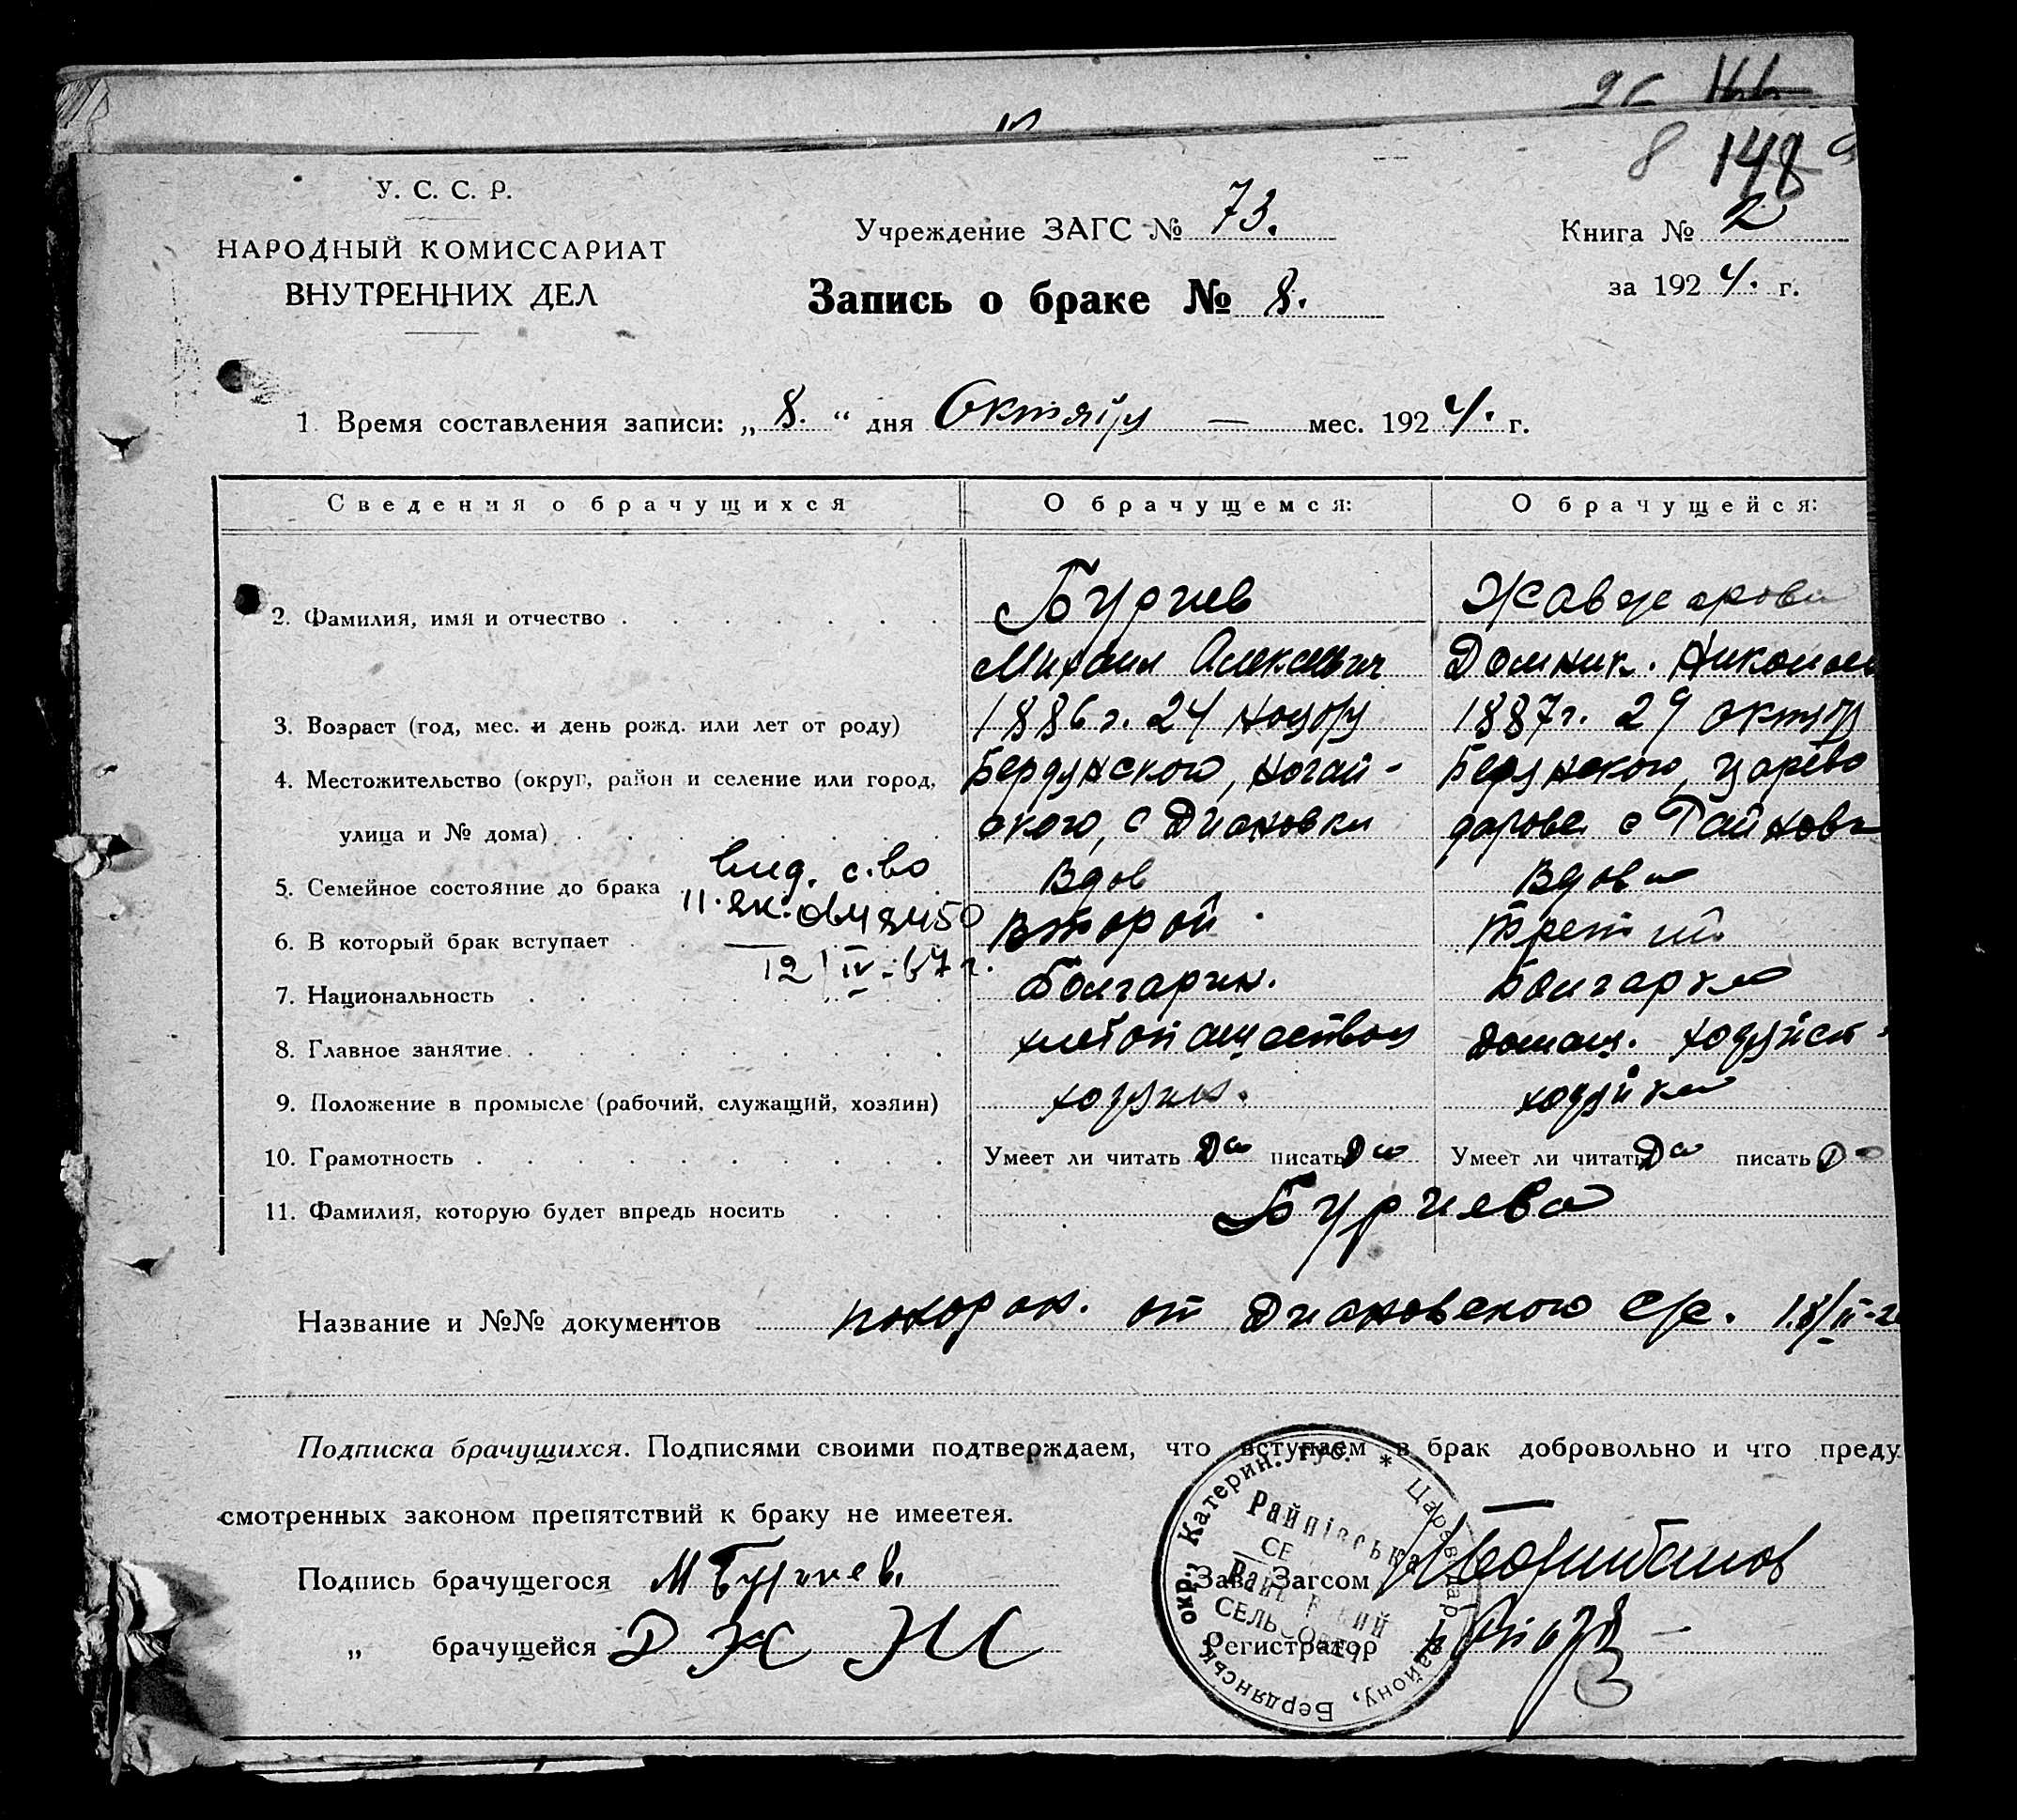 8 148
У. С. С. Р.
НАРОДНЫЙ КОМИССАРИАТ
ВНУТРЕННИХ ДЕЛ
Учреждение ЗАГС № 73.
Книга № 2
Запись о браке № 8.
за 1924. г.
1 Время составления записи: „ 8. “ дня Октября — мес. 1924. г.
Сведения о брачущихся О брачущемся: О брачущейся:
Бургиев
2. Фамилия, имя и отчество
Михаил Алексевич Домник. Николае
3. Возраст (год, мес. и день рожд. или лет от роду) 1886 г. 24 ноября 1887 г. 29 октяб
4. Местожительство (округ, район и селение или город, Бердянского, Ногай-
улица и № дома) ского, с Диановки с Райновк
5. Семейное состояние до брака Вдов Вдова
6. В который брак вступает Второй Третий
12/IV-67 г.
7. Национальность Болгарин. Болгарка
8. Главное занятие хлебопашеством домаш. хозяйст
9. Положение в промысле (рабочий, служащий, хозяин) хозяин. хозяйка
10. Грамотность Умеет ли читать Да писать Да Умеет ли читать Да писать Д
11. Фамилия, которую будет впредь носить Бургиева
Название и №№ документов от Диановского с/с. 18/II-2
Подписка брачущихся. Подписями своими подтверждаем, что вступаем в брак добровольно и что преду
смотренных законом препятствий к браку не имеетея.
Подпись брачущегося М Бургиев.
Зав. Загсом
„ брачущейся Д Ж Н
Регистратор
Бердянськ. окр., Катерин. Губ. * Царевдар району,
Райнівська
СЕЛЬСОВЕТ